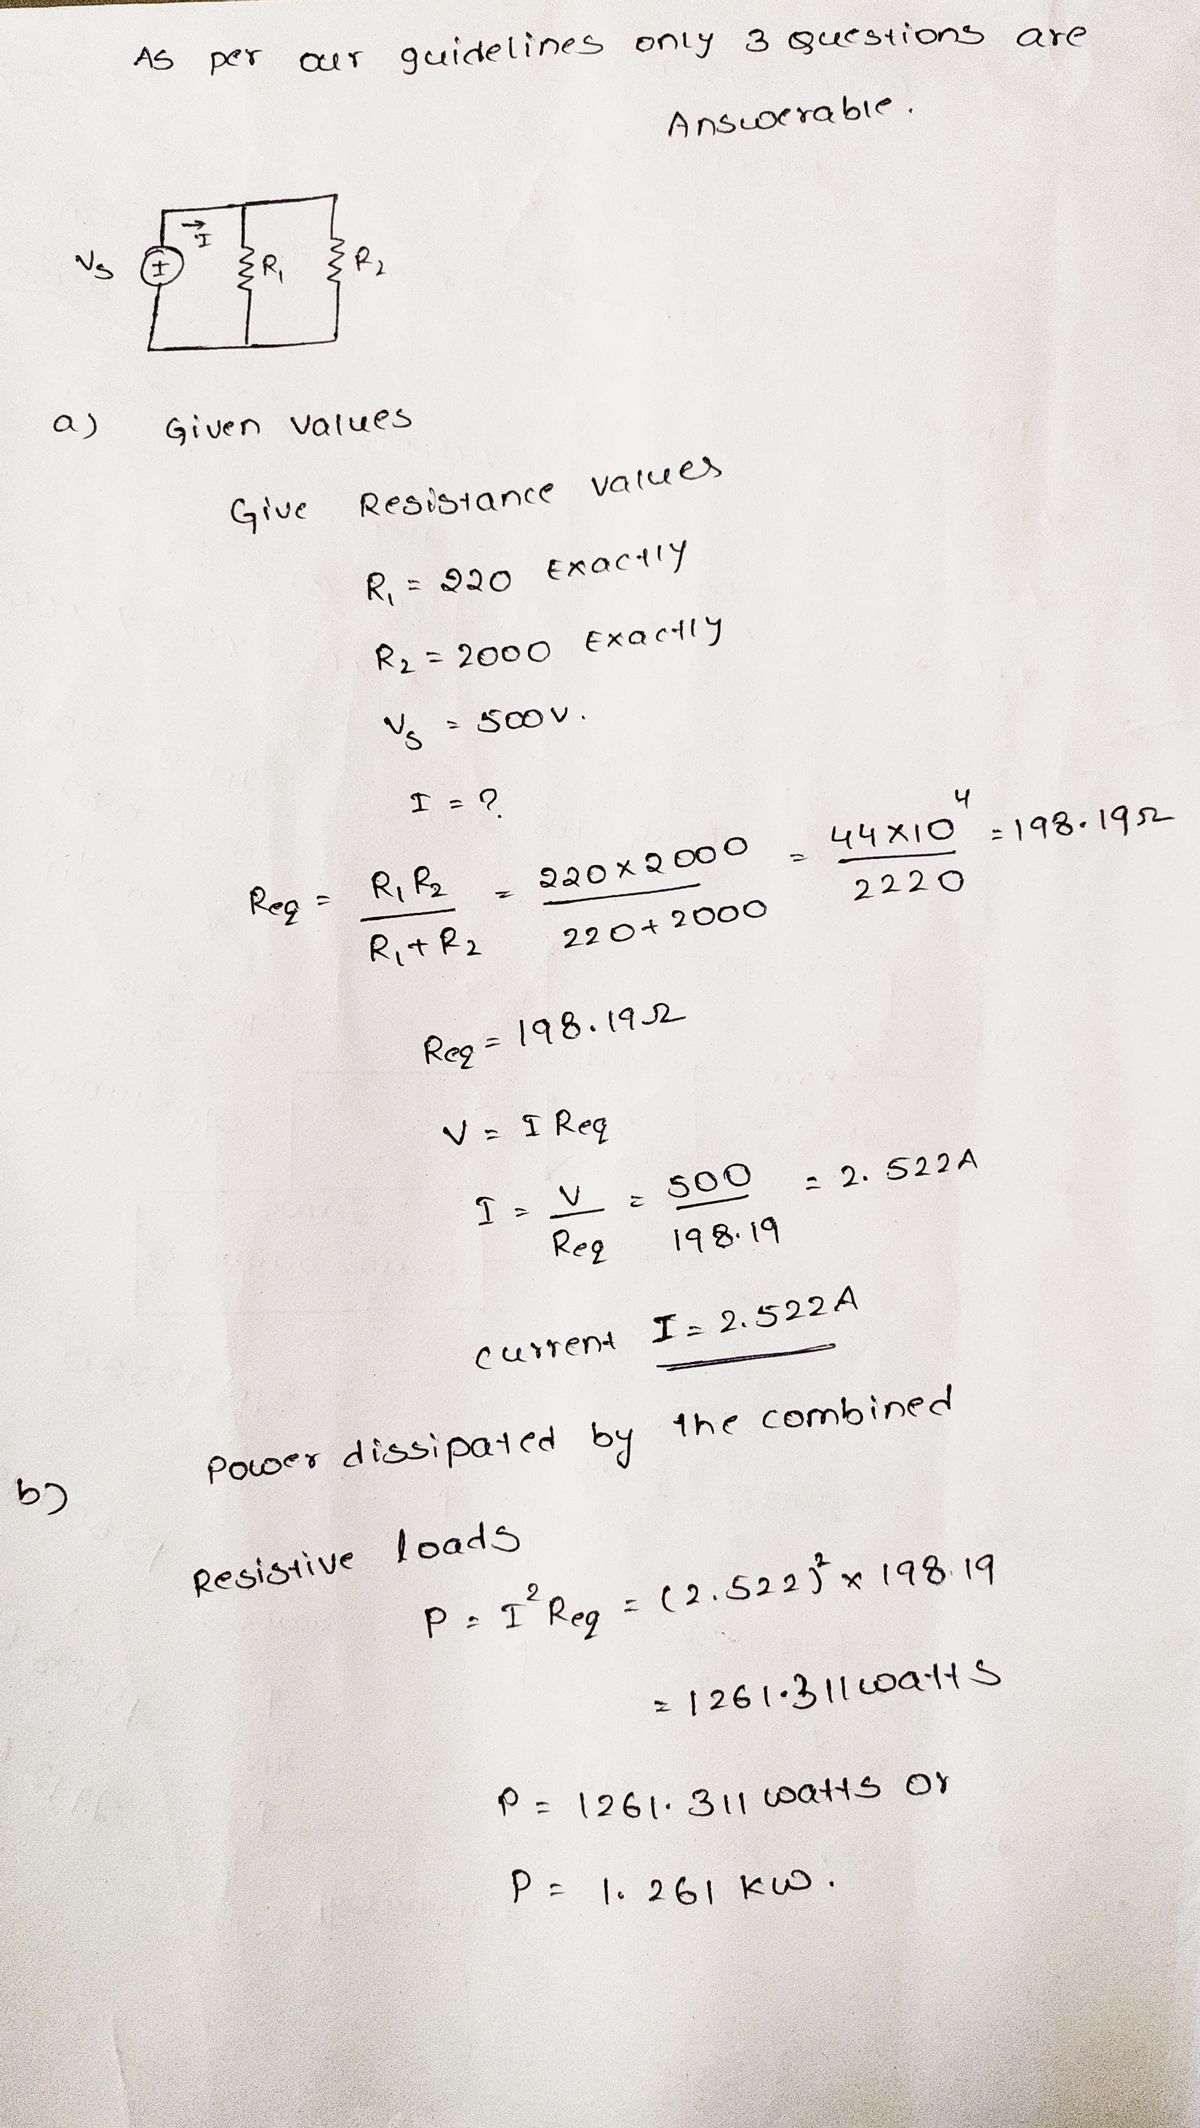 As per our guidelines only 3 Questions are
Answerable.
Vs
I
R₁
R₂
a) Given values
Give Resistance values
R₁ = 220 Exactly
R₂ = 2000 Exactly
Vs = 500V.
I = ?
Req = R₁R₂ / R₁+R₂ = 220×2000 / 220+2000 = 44×10⁴ / 2220 = 198.19Ω
Req = 198.19Ω
V = I Req
I = V / Req = 500 / 198.19 = 2.522A
current I = 2.522A
b) Power dissipated by the combined
Resistive loads
P = I²Req = (2.522)² × 198.19
= 1261.311 watts
P = 1261.311 watts or
P = 1.261 KW.